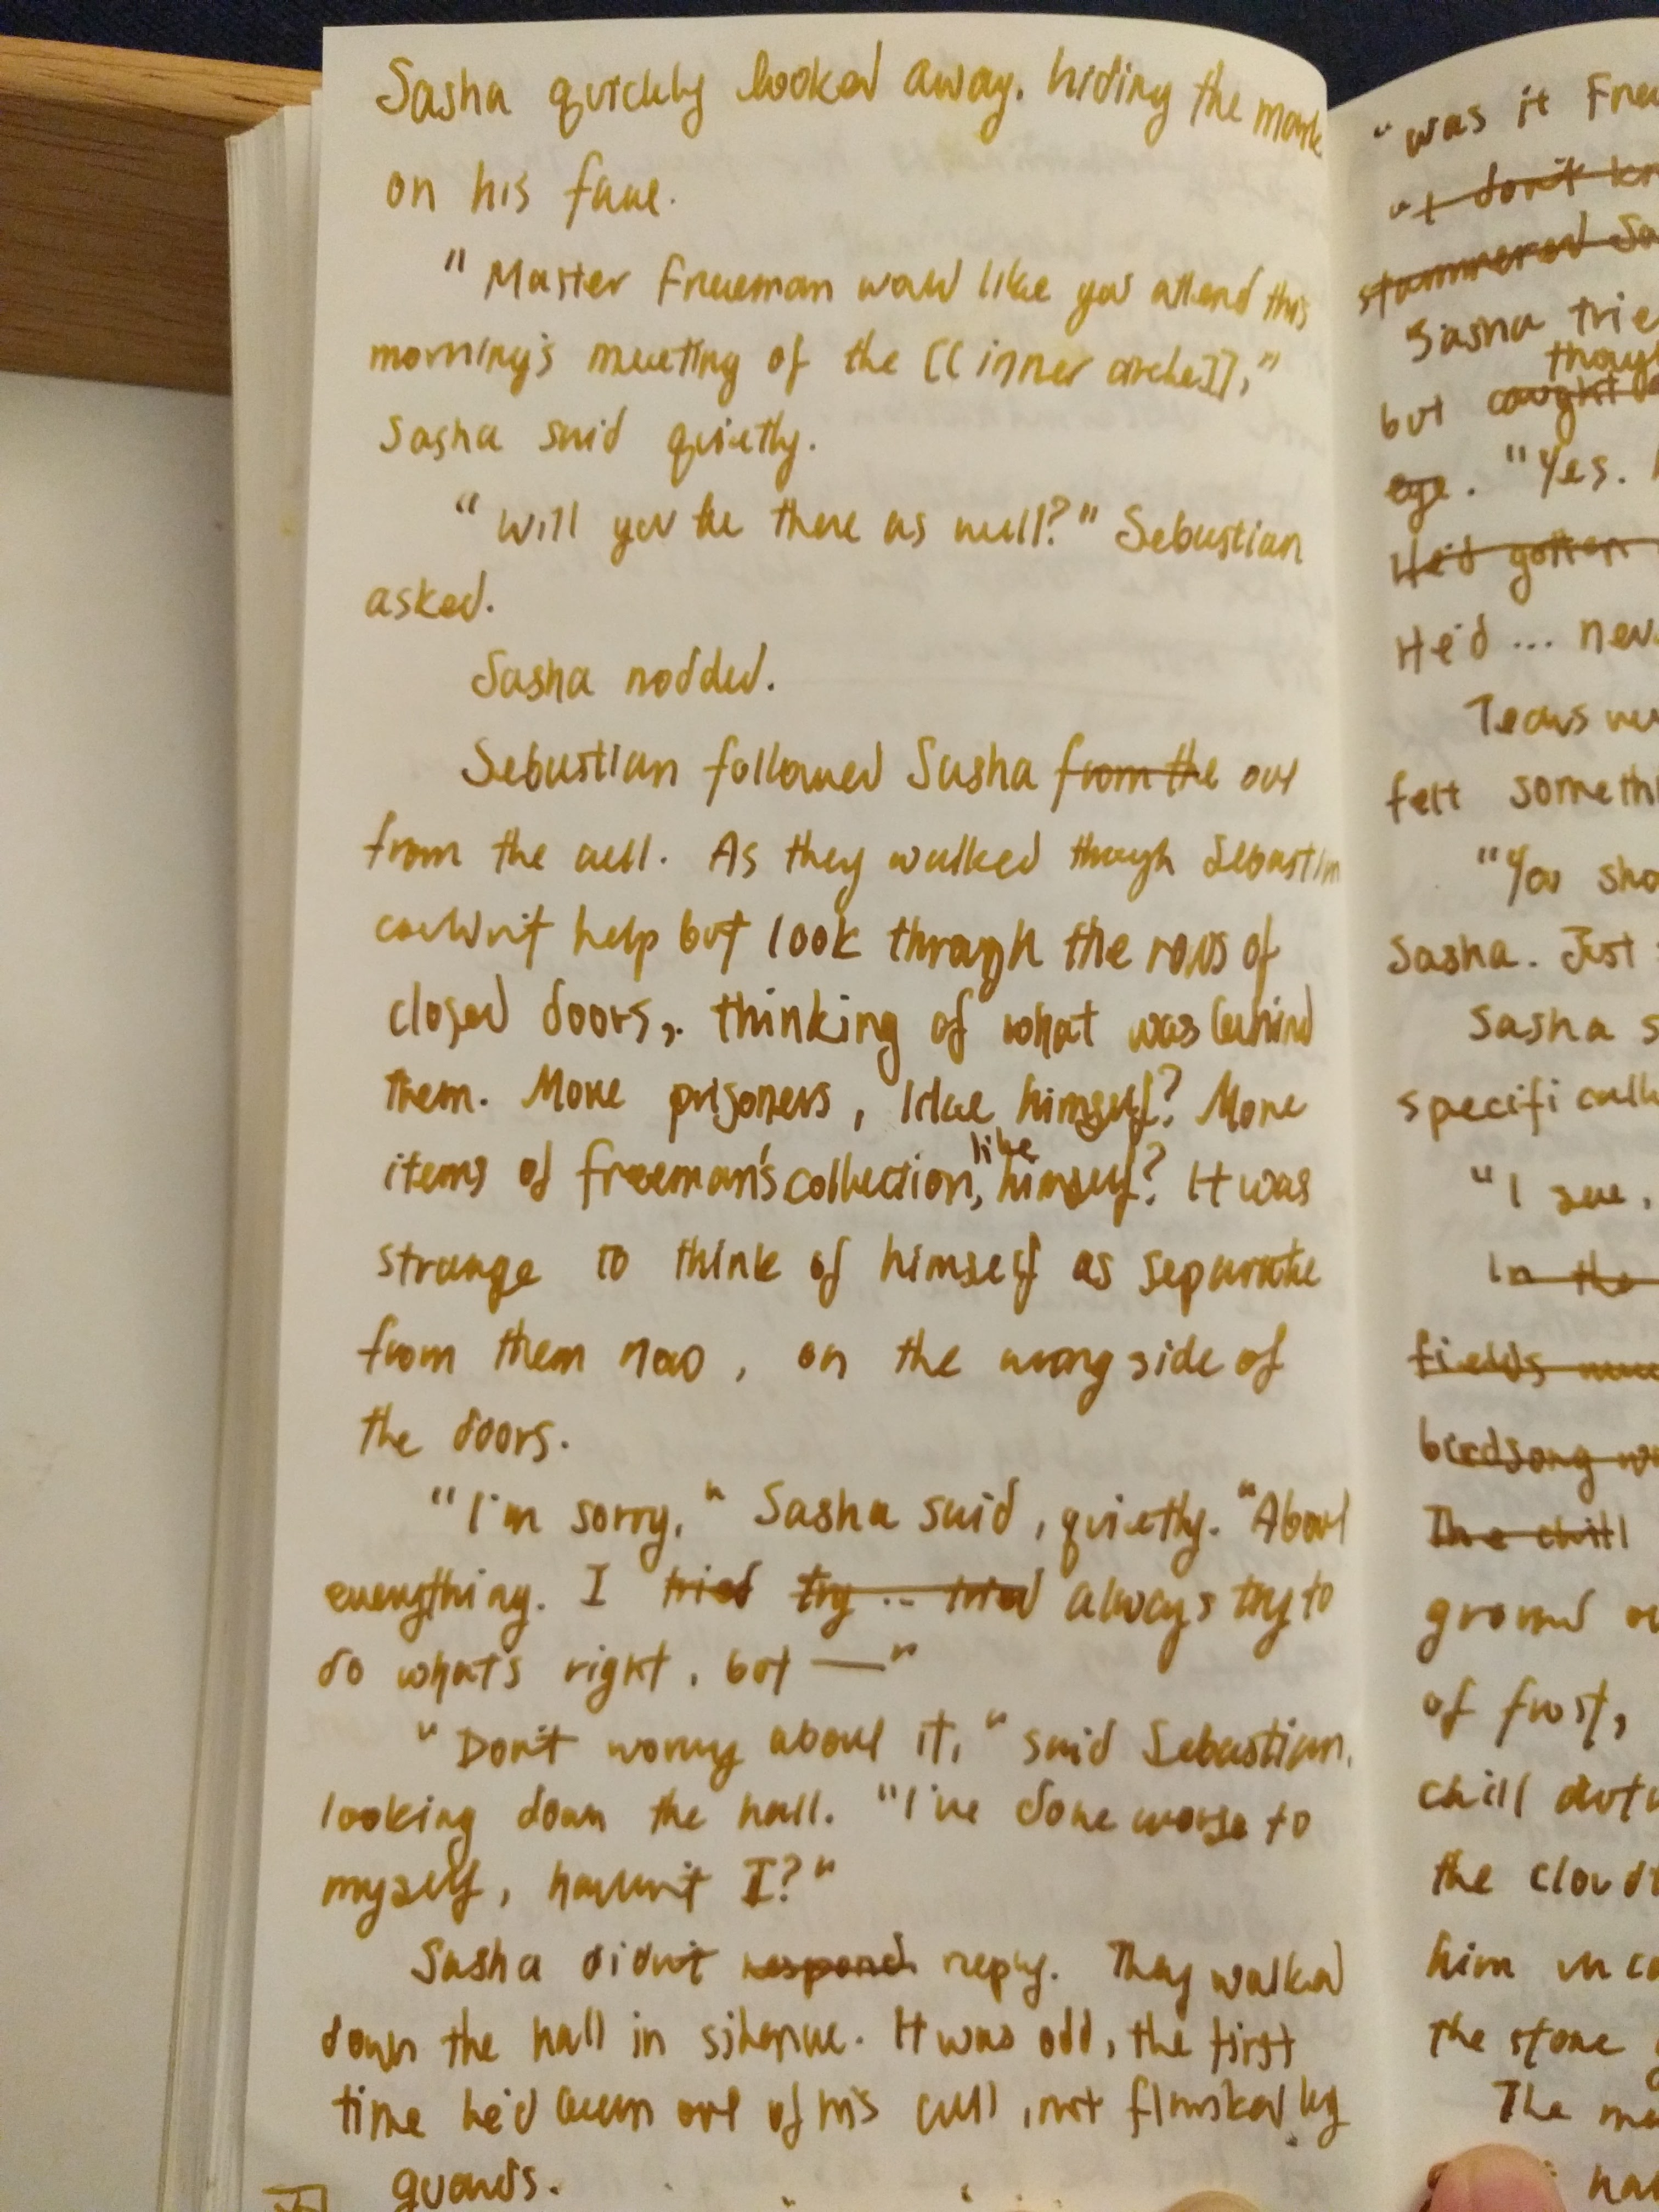 Sasha quickly looked away. hiding the mark
on his face.
"Master Freeman would like you attend this
morning's meeting of the [[inner circle]],"
Sasha said quietly.
"Will you be there as well?" Sebastian
asked.
Sasha nodded.
Sebastian followed Sasha from the out
from the cell. As they walked though Sebastian
couldn't help but look through the rows of
closed doors,. thinking of what was behind
them. More prisoners, like himself? More
like
items of freeman's collection, himself? It was
strange to think of himself as separate
from them now, on the wrong side of
the doors.
"I'm sorry," Sasha said, quietly. "About
everything. I tried try -- tried always try to
do what's right, but —"
"Don't worry about it," said Sebastian,
looking down the hall. "I've done worse to
myself, haven't I?"
Sasha didn't respond reply. They walked
down the hall in silence. It was odd, the first
time he'd been out of his cell, not flanked by
guards.
"was it
"I don't
stammered
Sasha
but caught
eye. "Yes.
He'd gotten
He'd ...
Tears
felt
"You
Sasha. Just
Sasha
"I see,
In the
fields
birdsong
The chill
ground
of frost,
chill
the
him
the stone
The